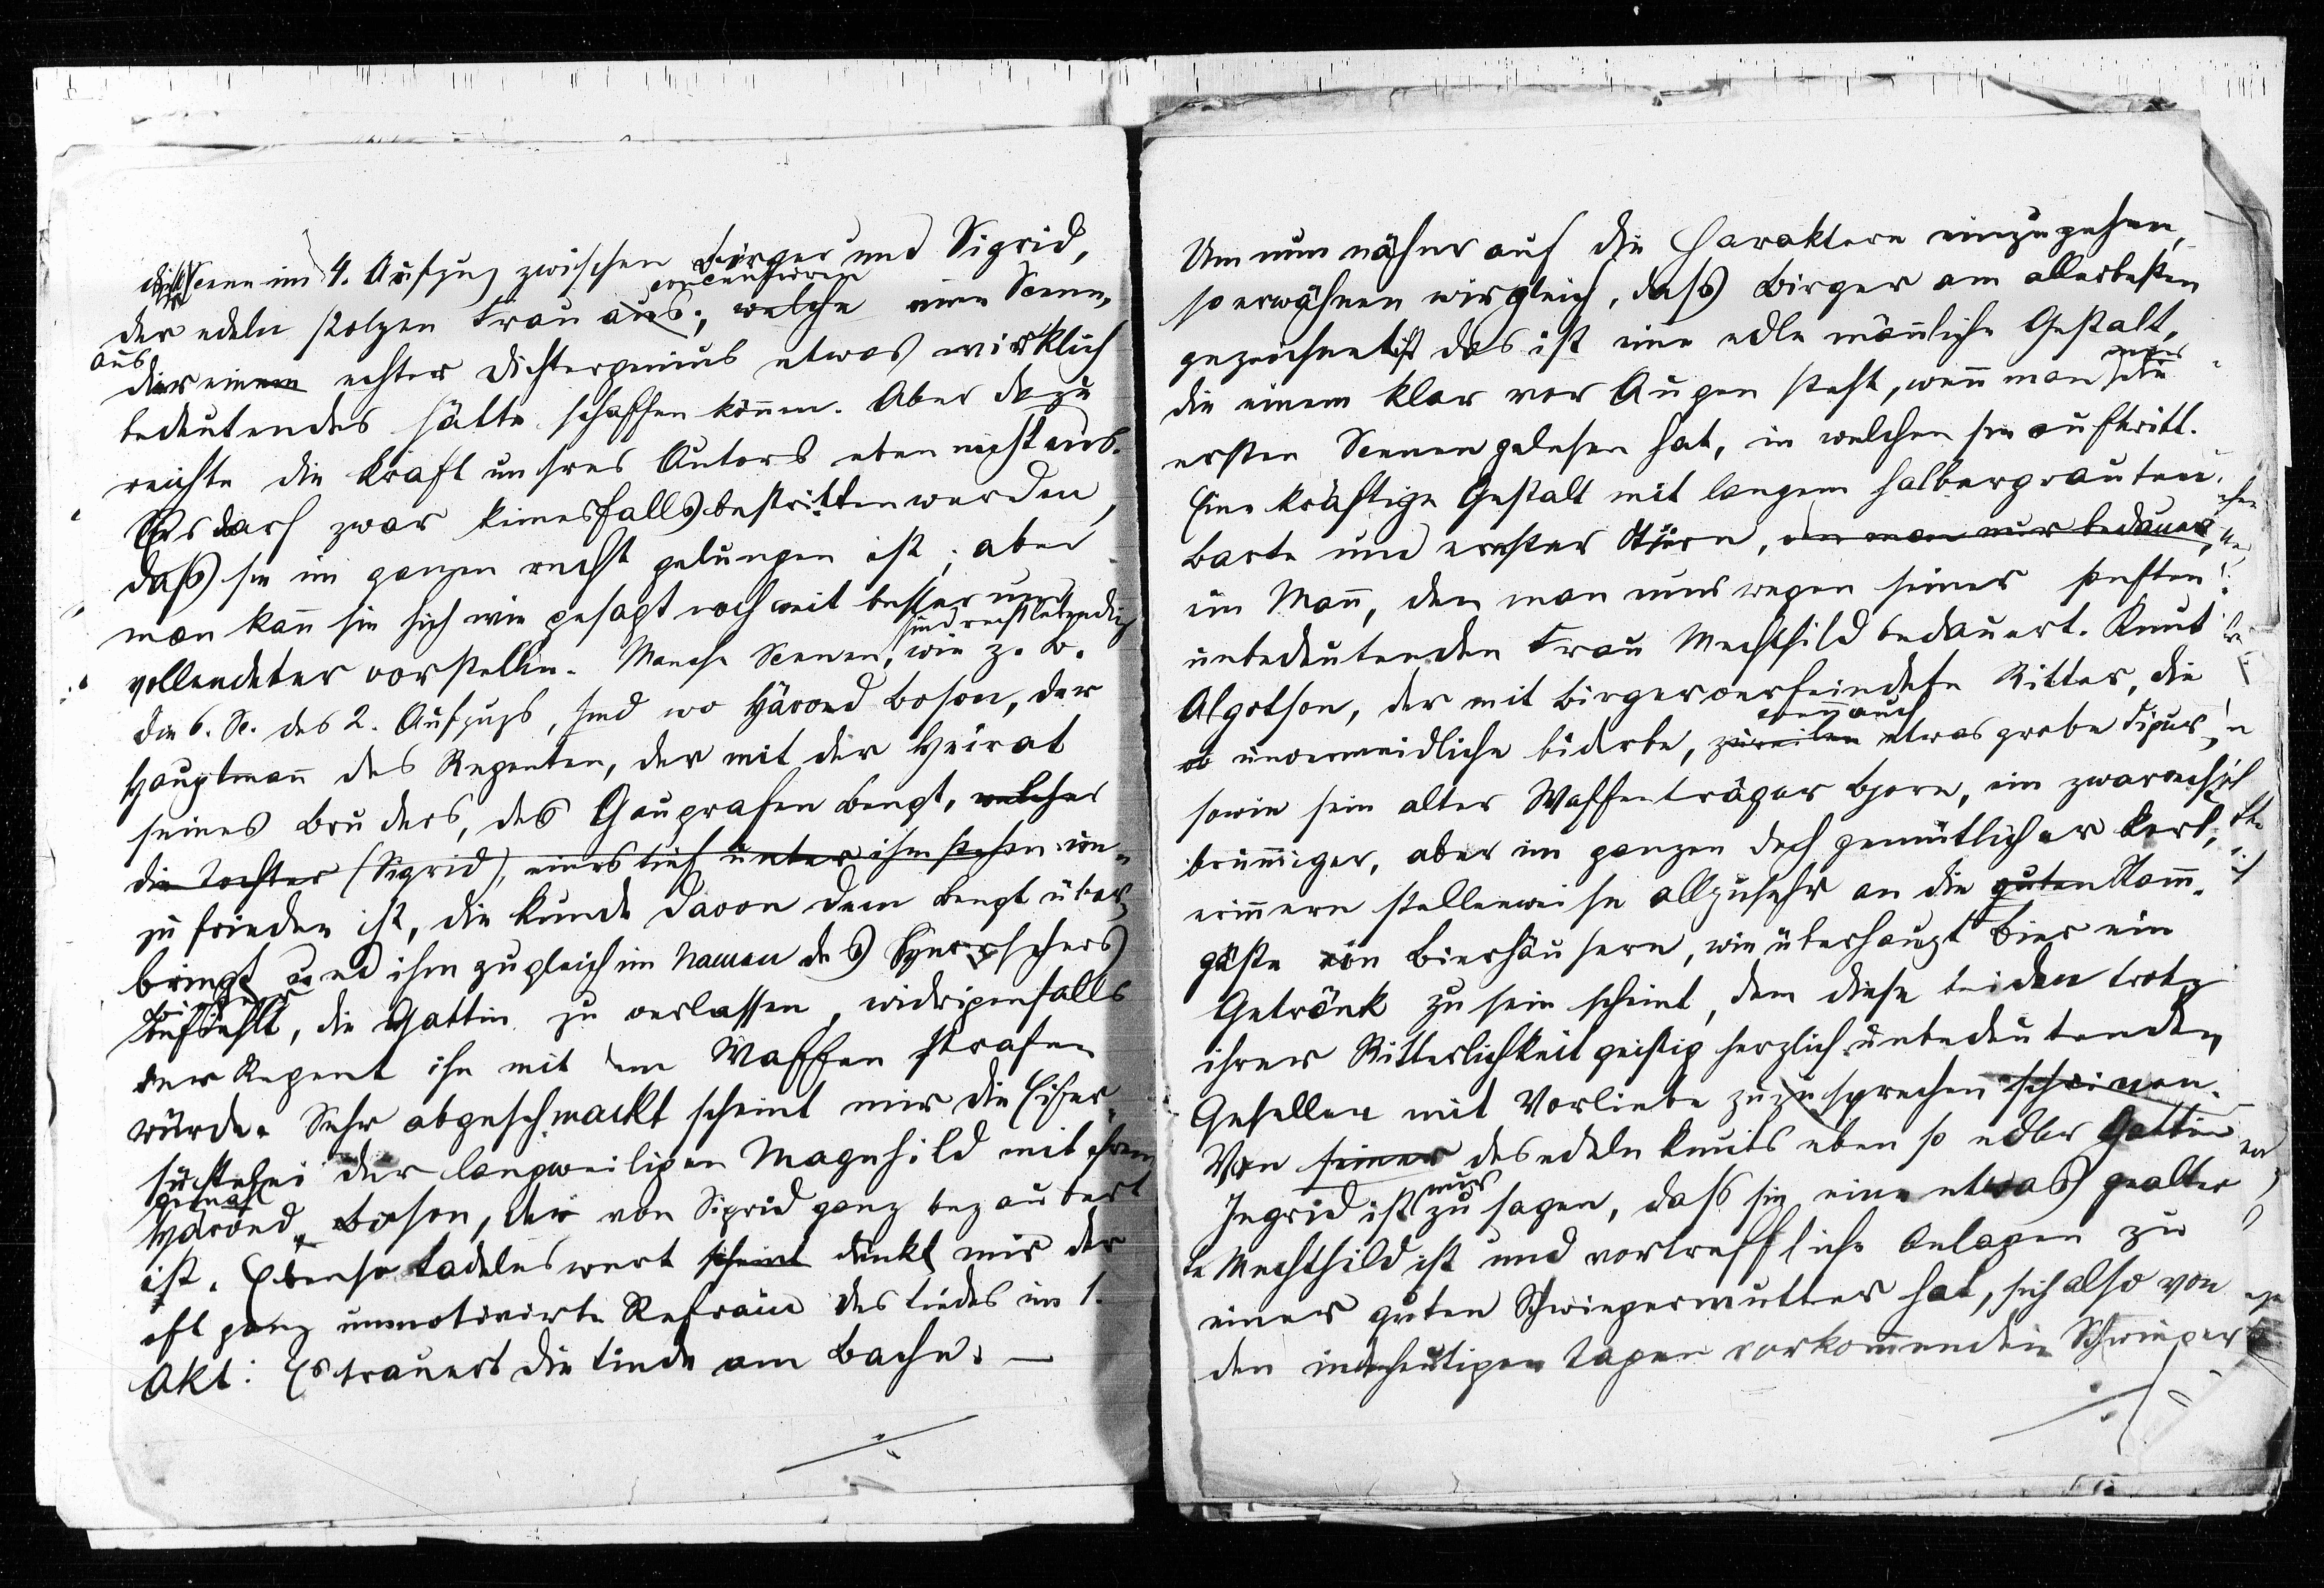 die Scene im 4. Aufzug zwischen Birger und Sigrid,
der edeln stolzen Frau aus, welche eine Scene,
aus
der einem echter Dichtergenius etwas wirklich
bedeutendes hätte schaffen können. Aber dazu
reichte die Kraft unsres Autors eben nicht aus.
Es darf zwar keinesfalls bestritten werden,
daß sie im ganzen recht gelungen ist; aber
man kann sie sich wie gesagt noch weit besser und
sind recht lebendig
vollendeter vorstellen. Manche Scenen, wie z. B.
die 6. Sc. des 2. Aufzugs, sind wo Härved Boson, der
Hauptmann des Regenten, der mit der Heirat
seines Bruders, des Gaugrafen Bengt, welcher
die Tochter (Sigrid), eines tief unter ihm stehen un-
zufrieden ist, die Kunde davon dem Bengt über-
bringt und ihm zugleich im Namen des Herrschers
befiehlt, die Gattin zu verlassen, widrigenfalls
der Regent ihn mit den Waffen strafen
würde. Sehr abgeschmackt scheint mir die Eifer-
süchtelei der langweiligen Magnhild mit ihrem
Gemahl
Härved Boson, der von Sigrid ganz bezaubert
ist. Ebenso tadelnswert scheint dünkt mir der
oft ganz unmotivirte Refrain des Liedes im 1.
Akt: Es trauert die Linde am Bache. —
Um nun näher auf die Charaktere einzugehen,
so erwähnen wir gleich, daß Birger am allerbesten
gezeichnet ist das ist eine edle männliche Gestalt,
die einem klar vor Augen steht, wenn man die
ersten Scenen gelesen hat, in welchen sie auftritt.
Eine kräftige Gestalt mit langem halbergrautem
Barte und ernster Stirn, den man nur bedauer
ein Mann, den man nur wegen seiner sanften
unbedeutenden Frau Mechthild bedauert. Knut
Algotson, der mit Birger verfeindete Ritter, die
eben auch
unvermeidliche biderbe, zuweilen etwas grobe Figur,
sowie sein alter Waffenträger Bjorn, ein zwar recht
brummiger, aber im ganzen doch gemütlicher Kerl,
erinnern stellenweise allzusehr an die guten Stamm-
gäste in Bierhäusern, wie überhaupt Bier ein
Getränk zu sein scheint, dem diese beiden trotz
ihrer Ritterlichkeit geistig herzlich unbedeutenden
Gesellen mit Vorliebe zuzusprechen scheinen.
Von seiner des edeln Knuts eben so edler Gattin
nur
Ingrid ist zu sagen, daß sie eine etwas gealter
te Mechthild ist und vortreffliche Anlagen zu
einer guten Schwiegermutter hat, sich also von
den in den heutigen Tagen vorkommenden Schwieger